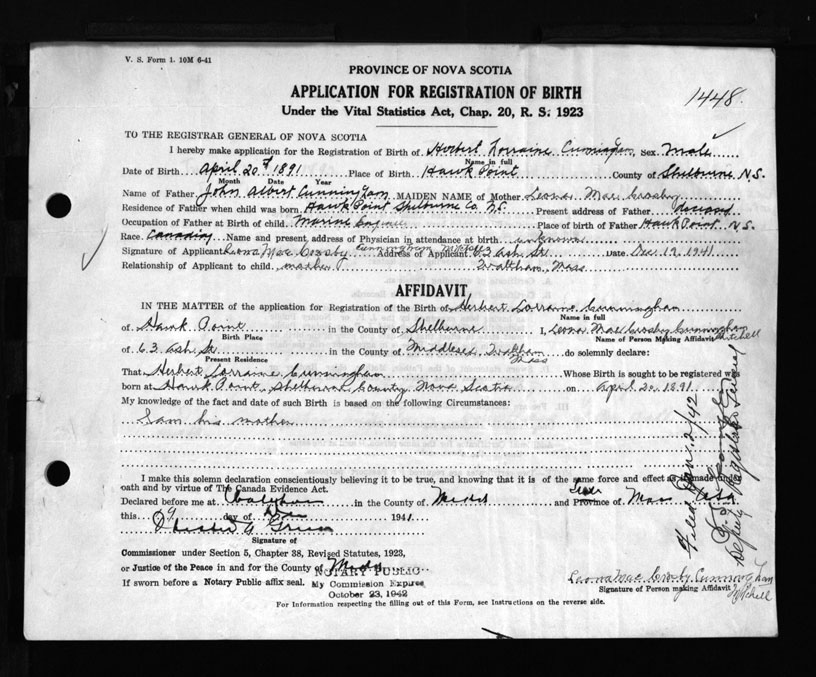 V. S. Form 1. 10M 6-41
PROVINCE OF NOVA SCOTIA
APPLICATION FOR REGISTRATION OF BIRTH
1448.
Under the Vital Statistics Act, Chap. 20, R. S. 1923
TO THE REGISTRAR GENERAL OF NOVA SCOTIA
I hereby make application for the Registration of Birth of Herbert Lorraine Cunningham Sex Male
Name in full
Date of Birth April 20th 1891 Place of Birth Hawk Point County of Shelburne N.S.
Month Date Year
Name of Father John Albert Cunningham MAIDEN NAME of Mother Leona Mae Crosby
Residence of Father when child was born Hawk Point Shelburne Co N.S. Present address of Father deceased
Occupation of Father at Birth of child Marine Place of birth of Father Hawk Point N.S.
Race Canadian Name and present address of Physician in attendance at birth unknown
Signature of Applicant Leona Mae Crosby Cunningham Mitchell Address of Applicant 63 Ash St. Date Dec 19 1941
Relationship of Applicant to child mother Waltham, Mass
AFFIDAVIT
IN THE MATTER of the application for Registration of the Birth of Herbert Lorraine Cunningham
Name in full
of Hawk Point in the County of Shelburne I, Leona Mae Crosby Cunningham Mitchell
Birth Place Name of Person Making Affidavit
of 63 Ash St in the County of Middlesex Waltham Mass do solemnly declare:
Present Residence
That Herbert Lorraine Cunningham Whose Birth is sought to be registered was
born at Hawk Point, Shelburne County Nova Scotia on April 20, 1891.
My knowledge of the fact and date of such Birth is based on the following Circumstances:
I am his mother
I make this solemn declaration conscientiously believing it to be true, and knowing that it is of the same force and effect as if made under
oath and by virtue of The Canada Evidence Act.
Declared before me at Waltham in the County of Midds and Province of Mass USA
this day of Dec 1941
Signature of
Commissioner under Section 5, Chapter 38, Revised Statutes, 1923,
or Justice of the Peace in and for the County of Midds
NOTARY PUBLIC
If sworn before a Notary Public affix seal. My Commission Expires
October 23, 1942
Leona Mae Crosby Cunningham Mitchell
Signature of Person making Affidavit
For Information respecting the filling out of this Form, see Instructions on the reverse side.
Filed Jan 2/42
Deputy Registrar General